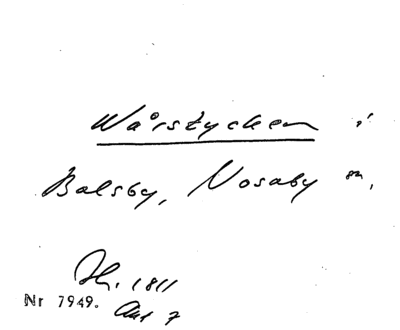 Wårstycken i
Balsby, Nosaby sn,
1811
Nr 7949. Akt 7